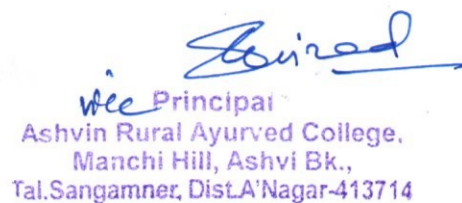 vice Principal
Ashvin Rural Ayurved College,
Manchi Hill, Ashvi Bk.,
Tal.Sangamner, Dist.A'Nagar-413714